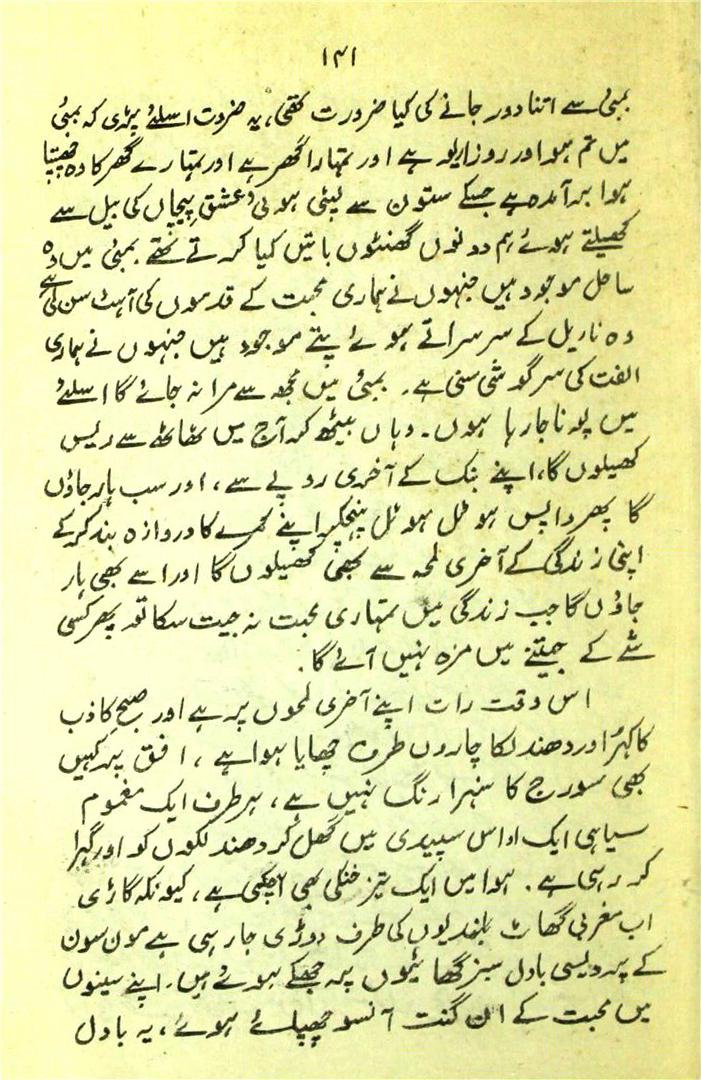 ۱۴۱
بمبئی سے اتنا دور جانے کی کیا ضرورت تھی، یہ ضروت اسلئے پڑی کہ بمبئی
میں تم ہو اور روزاریو ہے اور تمہارا گھر ہے اور تمہارے گھر کا وہ چھپتا
ہوا برآمدہ ہے جسکے ستون سے لپٹی ہوئی عشق پیچاں کی بیل سے
کھیلتے ہوئے ہم دونوں گھنٹوں باتیں کیا کرتے تھے بمبئی میں وہ
ساحل موجود ہیں جنہوں نے ہماری محبت کے قدموں کی آہٹ سن لی ہے
وہ ناریل کے سرسراتے ہوئے پتے موجود ہیں جنہوں نے ہماری
الفت کی سرگوشی سنی ہے۔ بمبئی میں مجھ سے مرا نہ جائے گا اسلئے
میں پونا جا رہا ہوں۔ وہاں بیٹھ کر آج میں ٹھاٹھ سے ریس
کھیلوں گا، اپنے بنک کے آخری روپے سے، اور سب ہار جاؤں
گا پھر واپس ہوٹل ہوٹل پہنچکر اپنے کمرے کا دروازہ بند کر کے
اپنی زندگی کے آخری لمحہ سے بھی کھیلوں گا اور اسے بھی ہار
جاؤں گا جب زندگی میں تمہاری محبت نہ جیت سکا تو پھر کسی
شے کے جیتنے میں مزہ نہیں آئے گا۔
اس وقت رات اپنے آخری لمحوں پر ہے اور صبح کاذب
کا کہرا اور دھندلکا چاروں طرف چھایا ہوا ہے، افق پر کہیں
بھی سورج کا سنہرا رنگ نہیں ہے، ہر طرف ایک مغموم
سیاہی ایک اداس سپیدی میں گھل کر دھندلکوں کو اور گہرا
کر رہی ہے۔ ہوا میں ایک تیز خنکی بھی آچکی ہے، کیونکہ گاڑی
اب مغربی گھاٹ بلندیوں کی طرف دوڑی جا رہی ہے مون سون
کے پردیسی بادل سبز گھاٹیوں پر جھکے ہوئے ہیں۔ اپنے سینوں
میں محبت کے ان گنت آنسو چھپائے ہوئے، یہ بادل